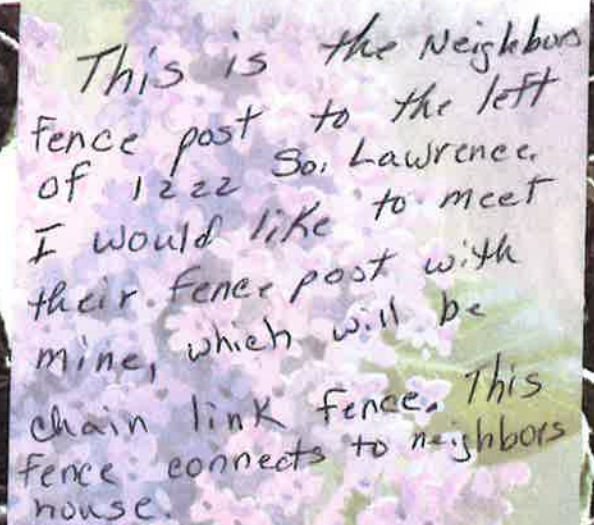 This is the Neighbors
fence post to the left
of 1222 So. Lawrence.
I would like to meet
their fence post with
mine, which will be
chain link fence. This
fence connects to neighbors
house.